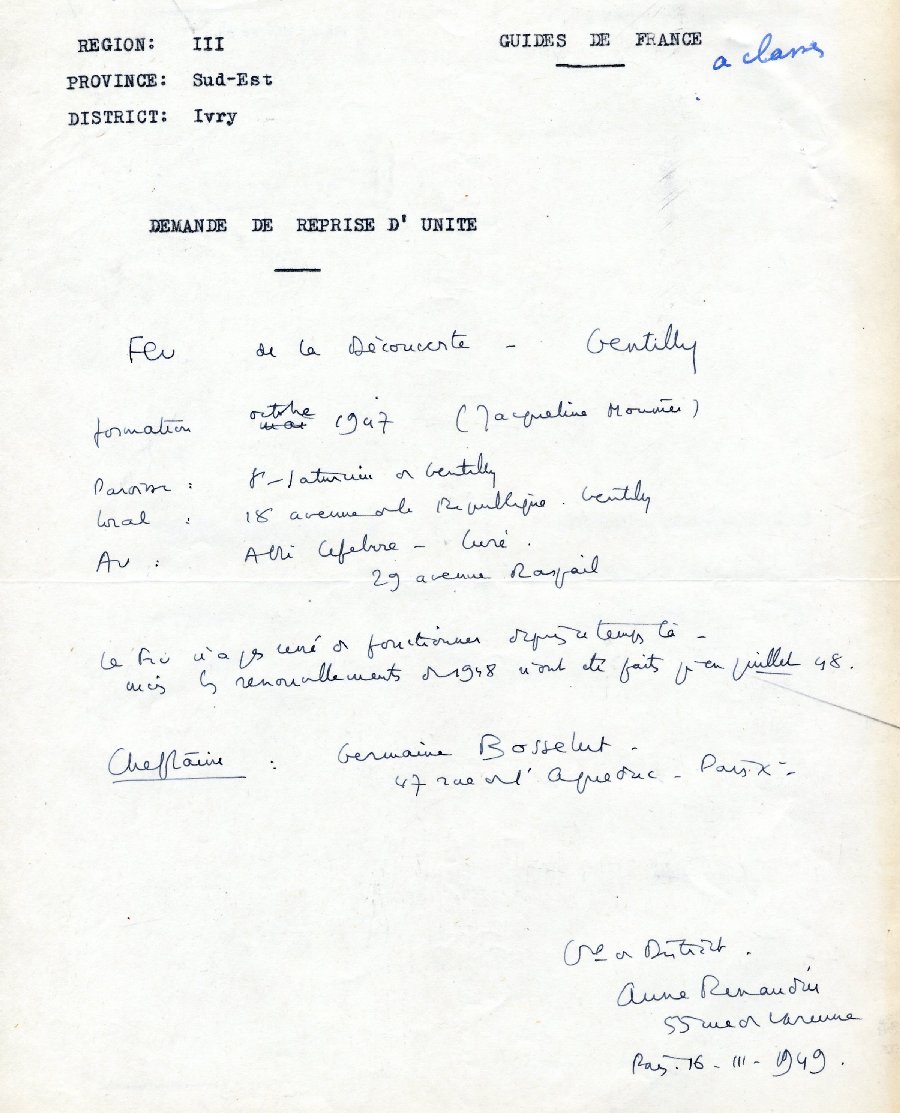 REGION: III
GUIDES DE FRANCE
a classer
PROVINCE: Sud-Est
DISTRICT: Ivry
DEMANDE DE REPRISE D' UNITE
Feu de la Découverte - Gentilly
formation octobre mai 1947 (Jacqueline Mounier)
Paroisse : St-Saturnin de Gentilly
Local : 18 avenue de la République. Gentilly
Au : Abbé Lefebvre - Curé.
29 avenue Raspail
Le Feu n'a pas cessé de fonctionner depuis ce temps là -
mais les renouvellements de 1948 n'ont été faits qu'en juillet 48.
Cheftaine : Germaine Bosselut -
47 rue de l'Aqueduc - Paris X -
de District.
Anne Renaudin
55 rue de Varenne
Paris. 16 - III - 1949.